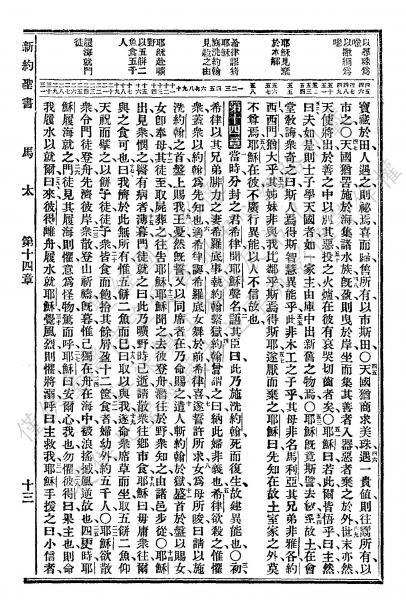 以尋珠爲喻
以撒網爲喻
耶穌見棄於本鄉
寶藏於田人遇之則祕焉喜而歸售所有以市斯田〇天國猶商求美珠遇一貴值則往鬻所有以
市之〇天國猶罟於海集諸水族既盈則曳於岸坐而集其善者入器惡者棄之於外世末亦然
天使將出於善之中以別其惡投之火爐在彼有哀哭切齒者矣〇耶穌曰若此爾皆悟乎曰主然
曰夫如是則士子學天國者如家主由庫中出新舊之物焉〇耶穌既竟斯譬去彼至故土在會
堂敎誨衆奇之曰斯人焉得斯智慧異能乎此非木工之子乎其母非名馬利亞其兄弟非雅各約
西西門猶大乎其姊妹非與我比鄰乎斯焉得斯耶遂厭而棄之耶穌曰先知在故土室家之外莫
不尊焉耶穌在彼不廣行異能以人不信故也
第十四章 當時分封之君希律聞耶穌聲名語其臣曰此乃施洗約翰死而復生故建異能也〇初
希律以其兄弟腓力之妻希羅底事執約翰繫獄約翰嘗謂之曰納此婦非義也希律欲殺之惟懼
衆蓋衆以約翰爲先知也適希律誕希羅底女舞於前希律喜遂誓許所求女爲母所唆曰請以施
洗約翰之首盤上賜我王憂然既誓又以同席者在乃命賜之遣人斬約翰於獄盛首於盤以賜女
女卽奉母其徒至取屍葬之往告耶穌耶穌聞之去彼登舟潛往於野衆知之由諸邑步從〇耶穌
出見衆憫之醫有病者薄暮門徒就之曰此乃曠野時已逝請散衆往鄉市食耶穌曰毋庸衆往爾
與之食可也曰我儕於此無所有惟五餅二魚而已曰取以與我遂命衆席草而坐取五餅二魚仰
天祝而擘之以餅予徒徒予衆皆食而飽拾其餘屑盈十二筐食者婦幼外約五千人〇耶穌欲散
衆令門徒登舟先濟彼岸衆散登山祈禱既暮惟己獨在舟在海中被浪搖撼風逆故也四更時耶
穌履海就之門徒見其履海則懼意爲怪物驚而呼耶穌曰安爾心我也勿懼彼得曰果主也則命
我履水以就爾曰來彼得離舟履水就耶穌覺風烈則懼將溺呼曰主救我耶穌手援之曰小信者
希律謬稱
施洗約翰見殺之由
耶穌赴野
以五餅二魚食五千人
耶穌履海就門徒
新約聖書 馬太 第十四章 十三